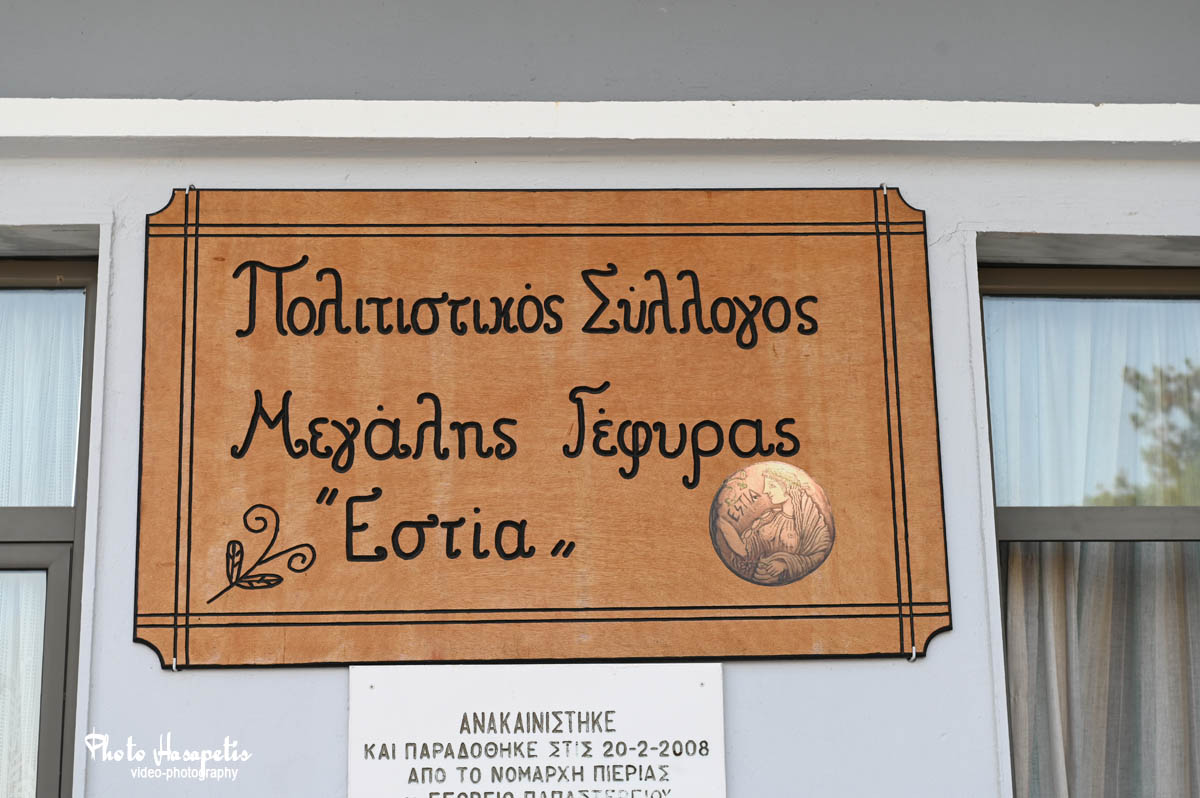 Πολιτιστικός Σύλλογος
Μεγάλης Γέφυρας
"Εστία„
ΕΣΤΙΑ
ΑΝΑΚΑΙΝΙΣΤΗΚΕ
ΚΑΙ ΠΑΡΑΔΟΘΗΚΕ ΣΤΙΣ 20-2-2008
ΑΠΟ ΤΟ ΝΟΜΑΡΧΗ ΠΙΕΡΙΑΣ
ΓΕΩΡΓΙΟ ΠΑΠΑΣΤΕΡΓΙΟΥ
Photo Hasapetis
video-photography